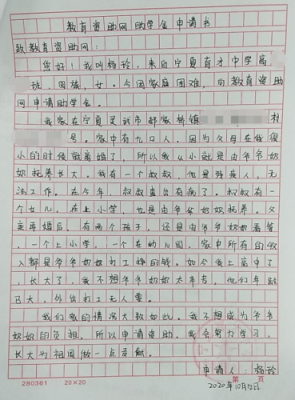 教育资助网助学金申请书
致教育资助网:
您好!我叫杨玲,来自宁夏育才中学高
班,回族,女。今因家庭困难,向教育资助
网申请助学金。
我家在宁夏灵武市郝家桥镇 村
号。家中有九口人,因为父母在我很
小的时候就离婚了,所以我从小就是由爷爷
奶奶抚养长大。我有一个叔叔,但是残疾人,无
法工作。在今年,叔叔去世有病了。叔叔有一
个女儿,在上小学,也是由爷爷奶奶抚养。父
亲再婚后,有两个孩子,还是由爷爷奶奶看管
,一个上小学,一个在幼儿园。家中所有的收
入都是爷爷奶奶打工挣的钱。如今我上高中了
,长大了,我不想爷爷奶奶太辛苦,他们年龄
已大,外出打工无人要。
我们家的情况大致如此。我不想成为爷爷
奶奶的负担,所以申请资助。我会努力学习,
长大为祖国做一点贡献。
申请人:杨玲
2020年10月
280361 25×20 第 页